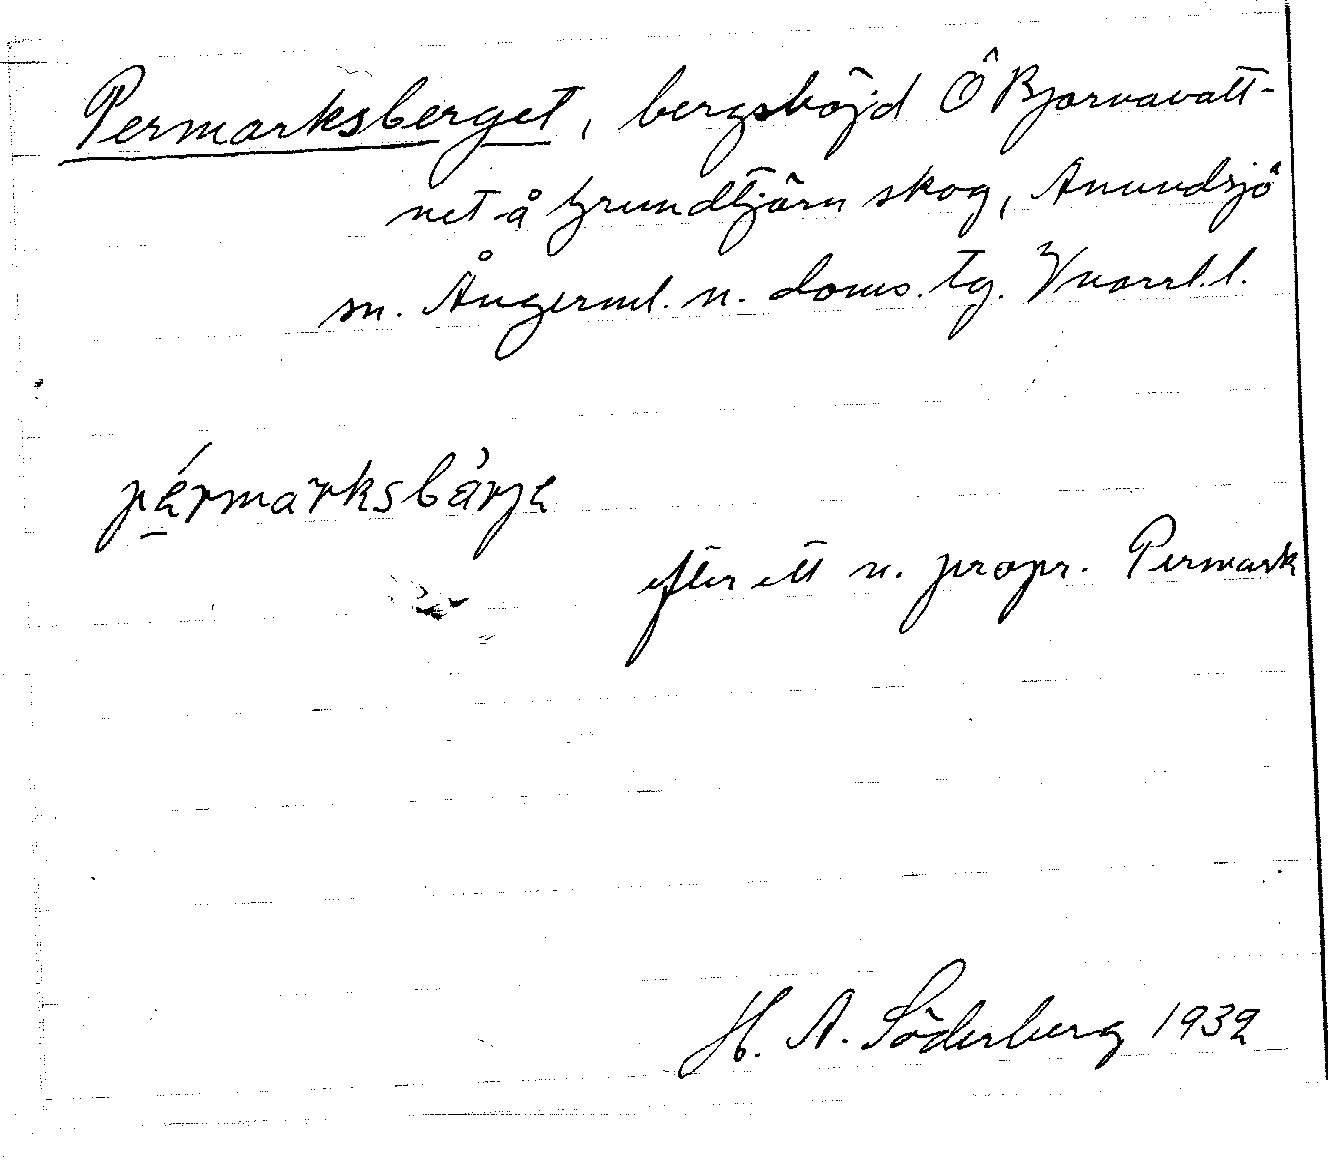 Permarksberget, bergshöjd Ö Bjornavatt-
net å Grundtjärn skog, Anundsjö
sn. Ångerml. n. doms. tg. Vnorrl. l.
pérmarksbärje
efter ett n. propr. Permark
H. A. Söderberg 1932